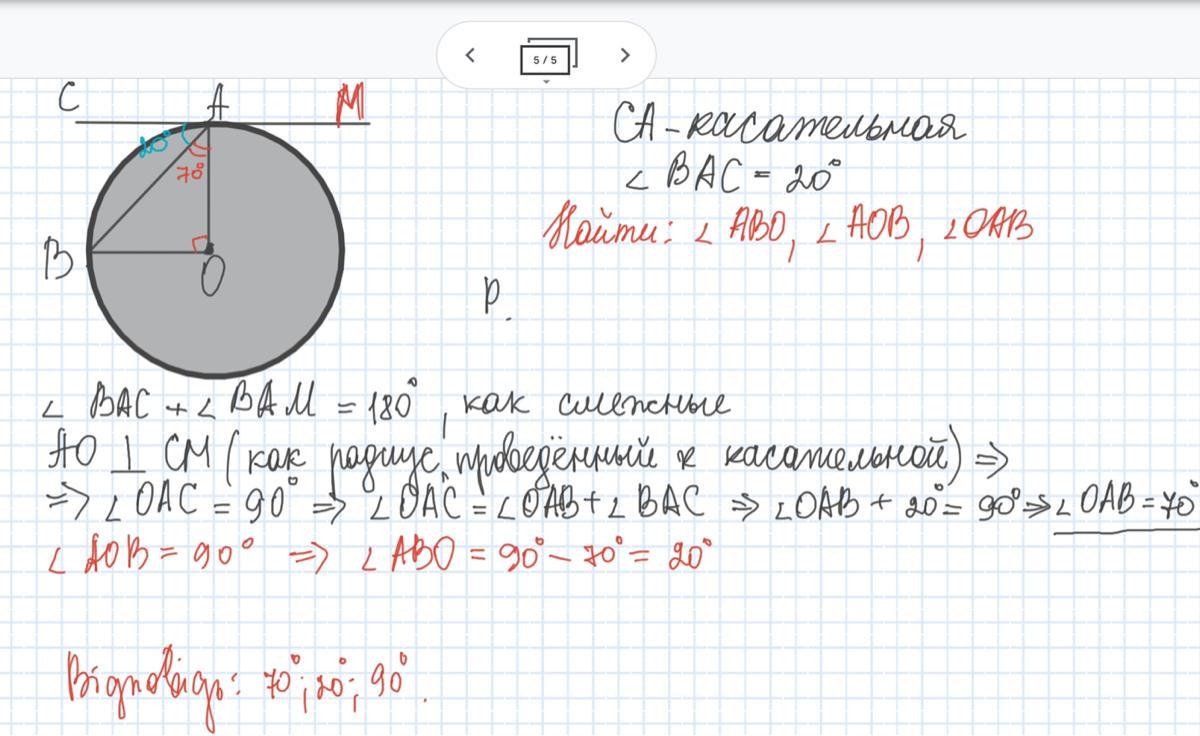 5 / 5
C A M
20°
70°
B
O
CA - касательная
∠ BAC = 20°
Найти: ∠ ABO, ∠ AOB, ∠OAB
Р.
∠ BAC + ∠ BAM = 180°, как смежные
AO ⊥ CM (как радиус, проведённый к касательной) ⇒
⇒ ∠OAC = 90° ⇒ ∠OAC = ∠OAB + ∠ BAC ⇒ ∠OAB + 20° = 90° ⇒ ∠OAB = 70°
∠ AOB = 90° ⇒ ∠ ABO = 90° - 70° = 20°
Відповідь: 70°; 20°; 90°.